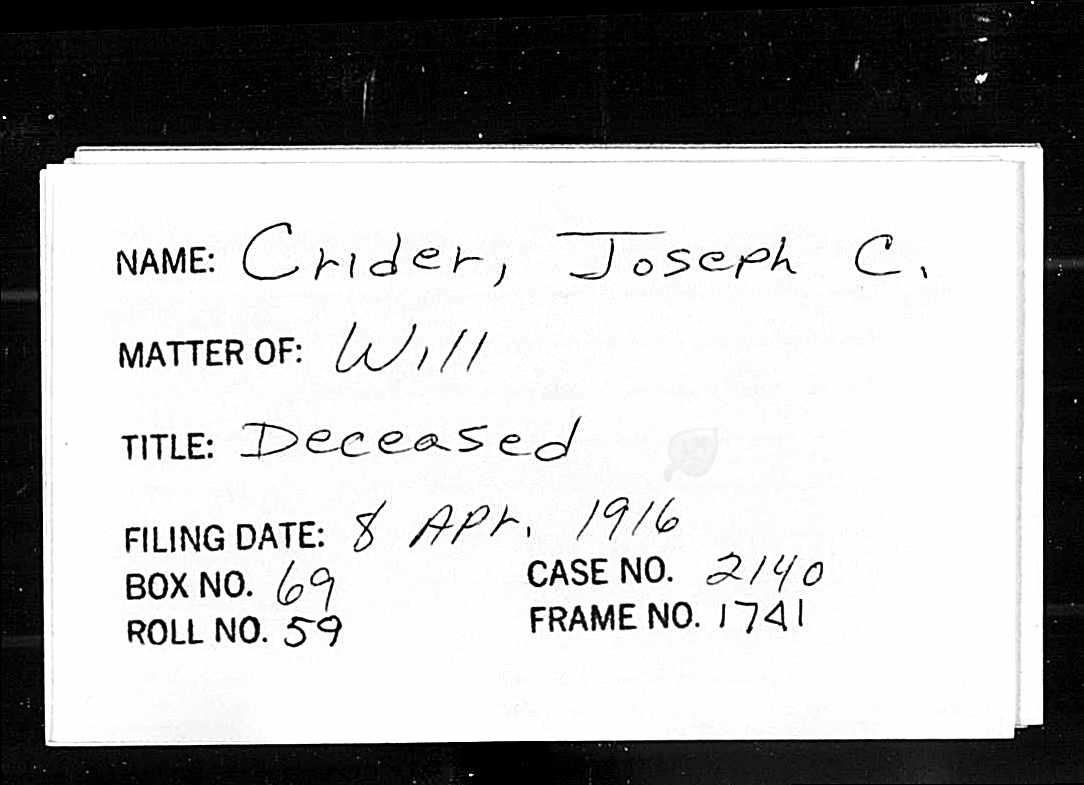 NAME: Crider, Joseph C.
MATTER OF: Will
TITLE: Deceased
FILING DATE: 8 Apr. 1916
BOX NO. 69 CASE NO. 2140
ROLL NO. 59 FRAME NO. 1741